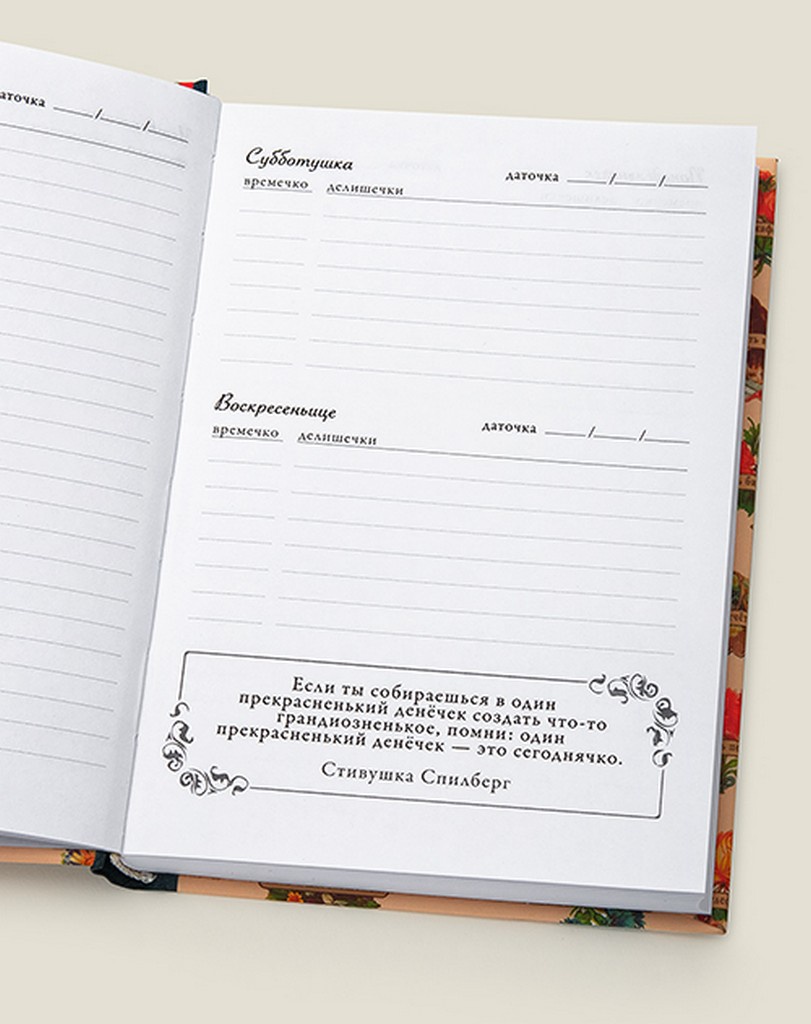 аточка __/__/__
Субботушка
даточка __/__/__
времечко делишечки
Воскресеньице
даточка __/__/__
времечко делишечки
Если ты собираешься в один
прекрасненький денёчек создать что-то
грандиозненькое, помни: один
прекрасненький денёчек — это сегоднячко.
Стивушка Спилберг